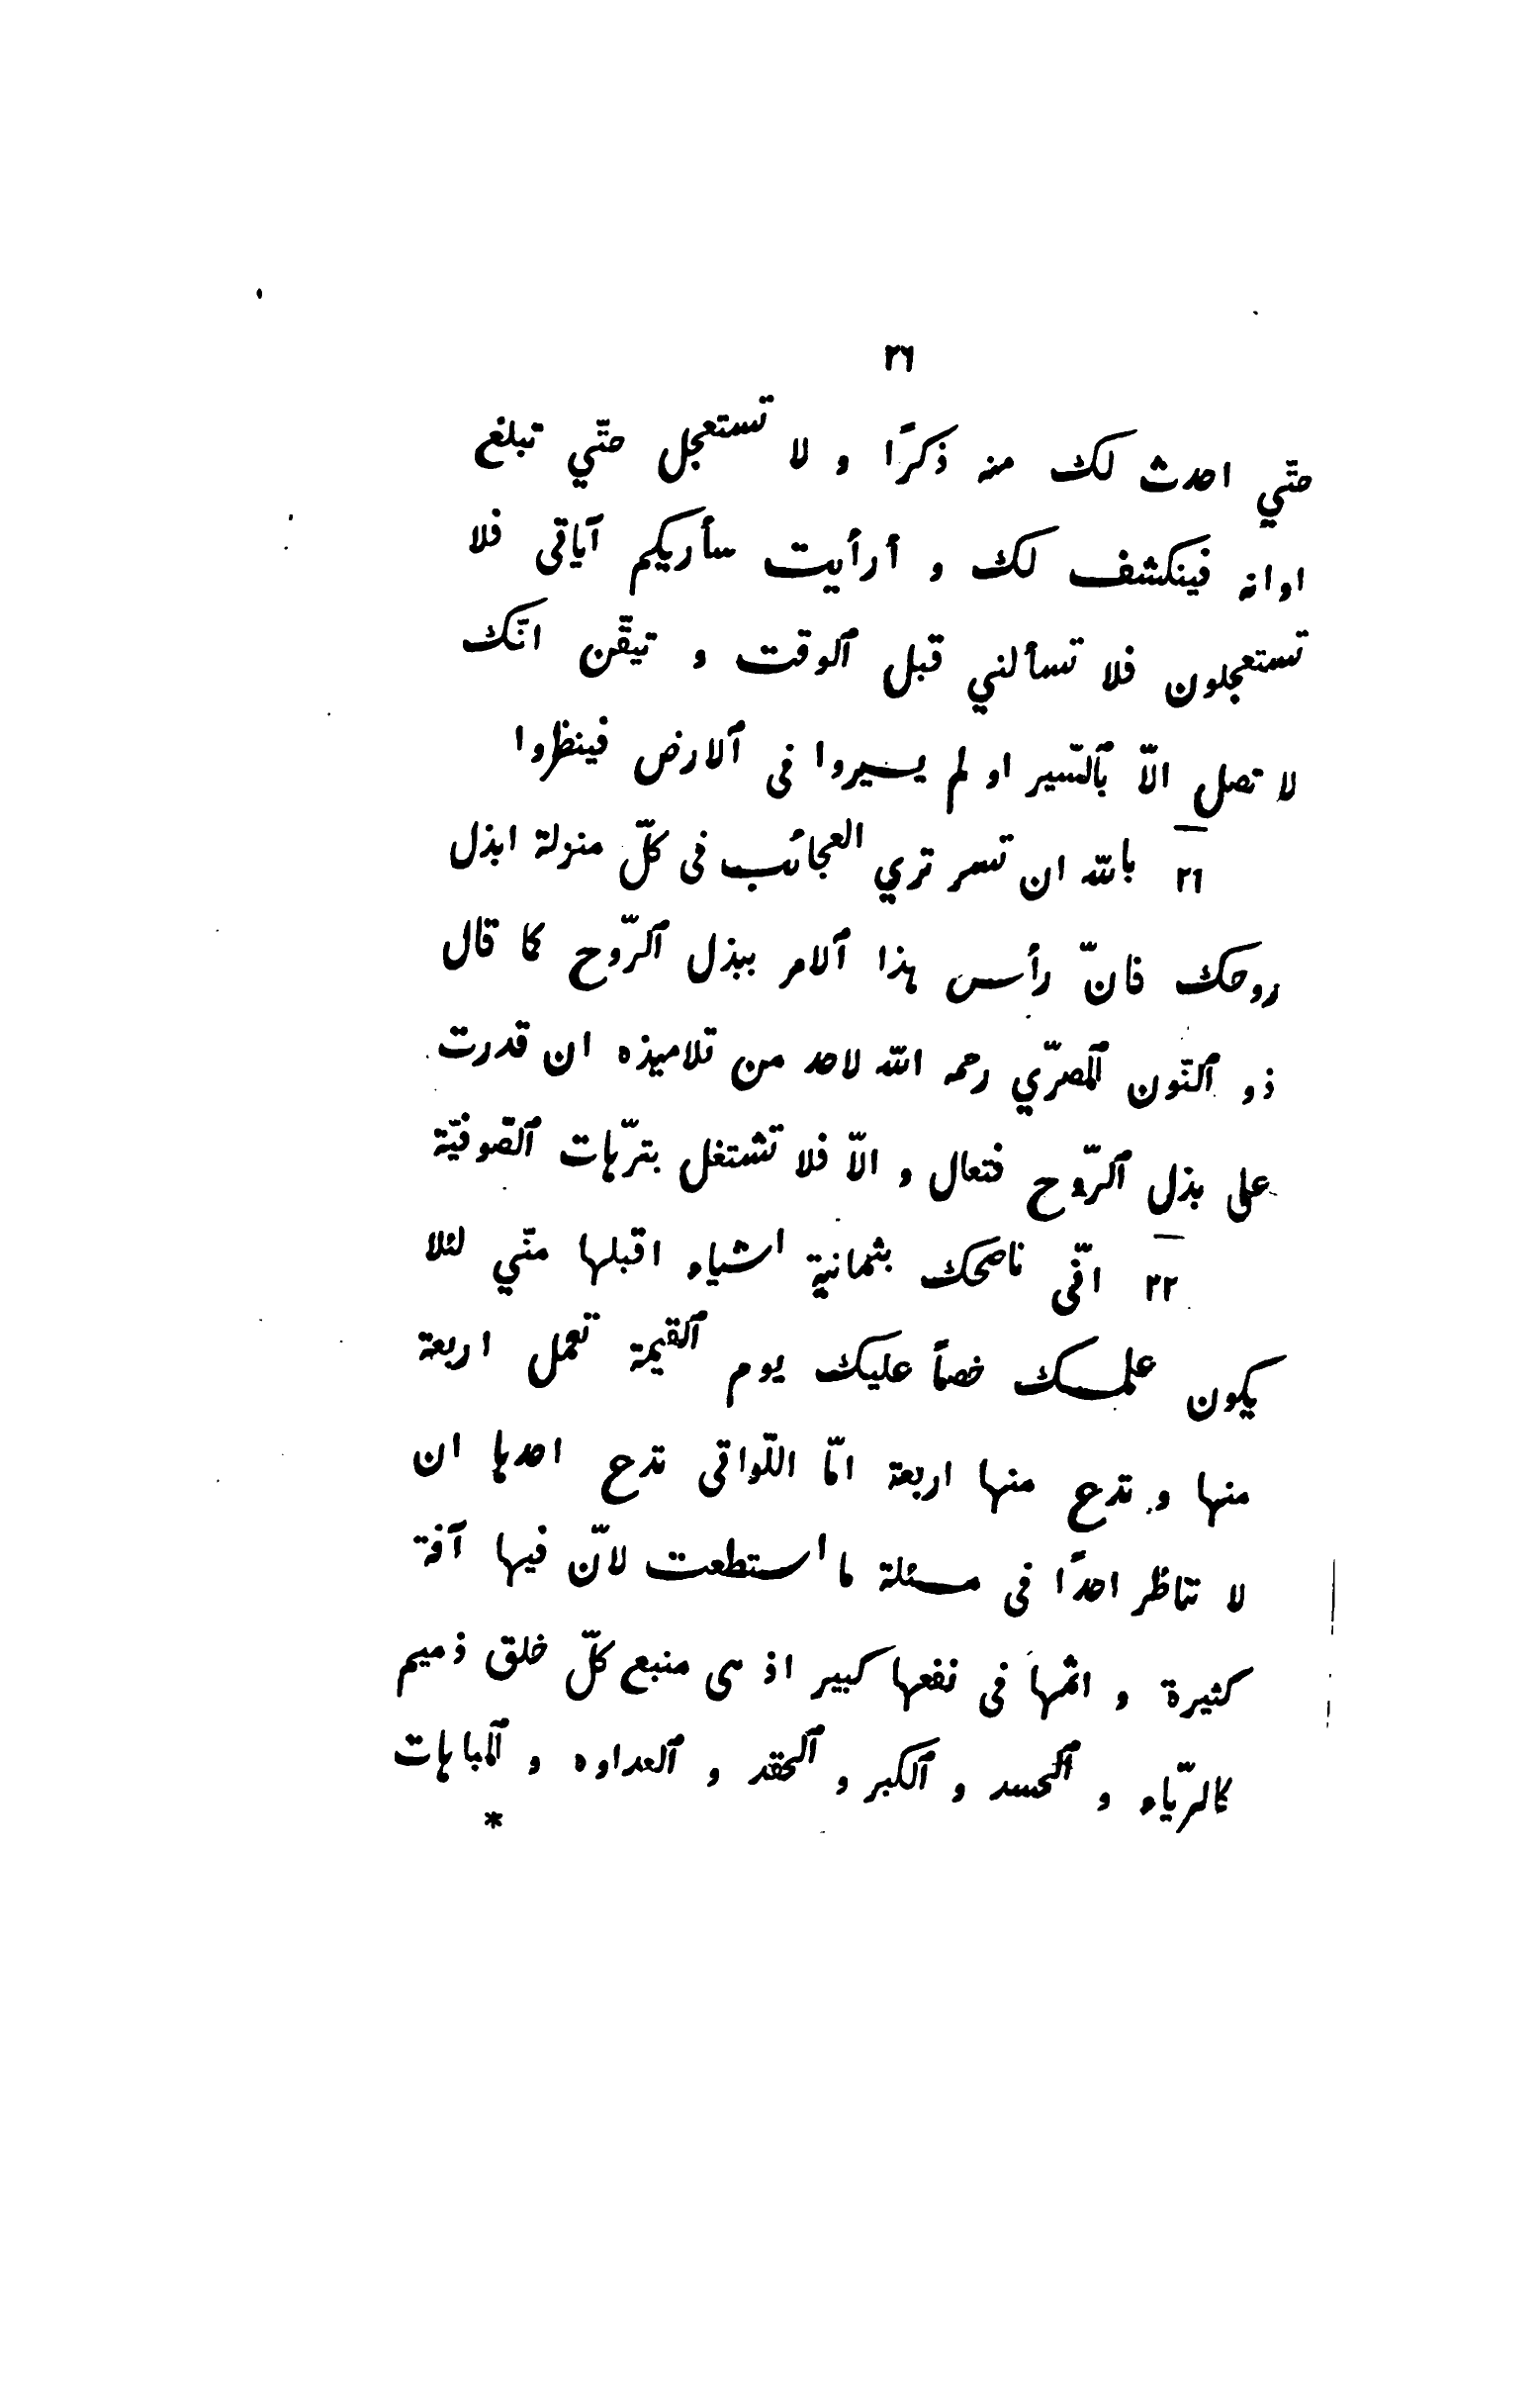 ٢٦
حتّي احدث لك منه ذكرًا و لا تستعجل حتّي تبلغ
اوانه فينكشف لك و أرأيت سأريكم آياتى فلا
تستعجلون فلا تسألني قبل ٱلوقت و تيقّن انّك
لا تصل الّا بٱلسّير او لم يسيروا فى ٱلارض فينظروا
٢١ بالله ان تسر تري العجائب فى كلّ منزلة ابذل
روحك فانّ رأس هذا ٱلامر ببذل ٱلرّوح كما قال
ذو ٱلنّون ٱلمصرّي رحمه الله لاحد من تلاميذه ان قدرت
على بذل ٱلرّوح فتعال و الّا فلا تشتغل بترّهات ٱلصّوفيّة
٢٢ انّى ناصحك بثمانية اشياء اقبلها منّي لئلا
يكون علمك خصمًا عليك يوم ٱلقيمة تعمل اربعة
منها و تدع منها اربعة امّا اللّواتى تدع احدها ان
لا تناظر احدًا فى مسئلة ما استطعت لانّ فيها آفة
كثيرة و اثمها فى نفعها كبير اذ هى منبع كلّ خلق ذميم
كالرّياء و ٱلحسد و ٱلكبر و ٱلحقد و ٱلعداوه و ٱلمباهات
*